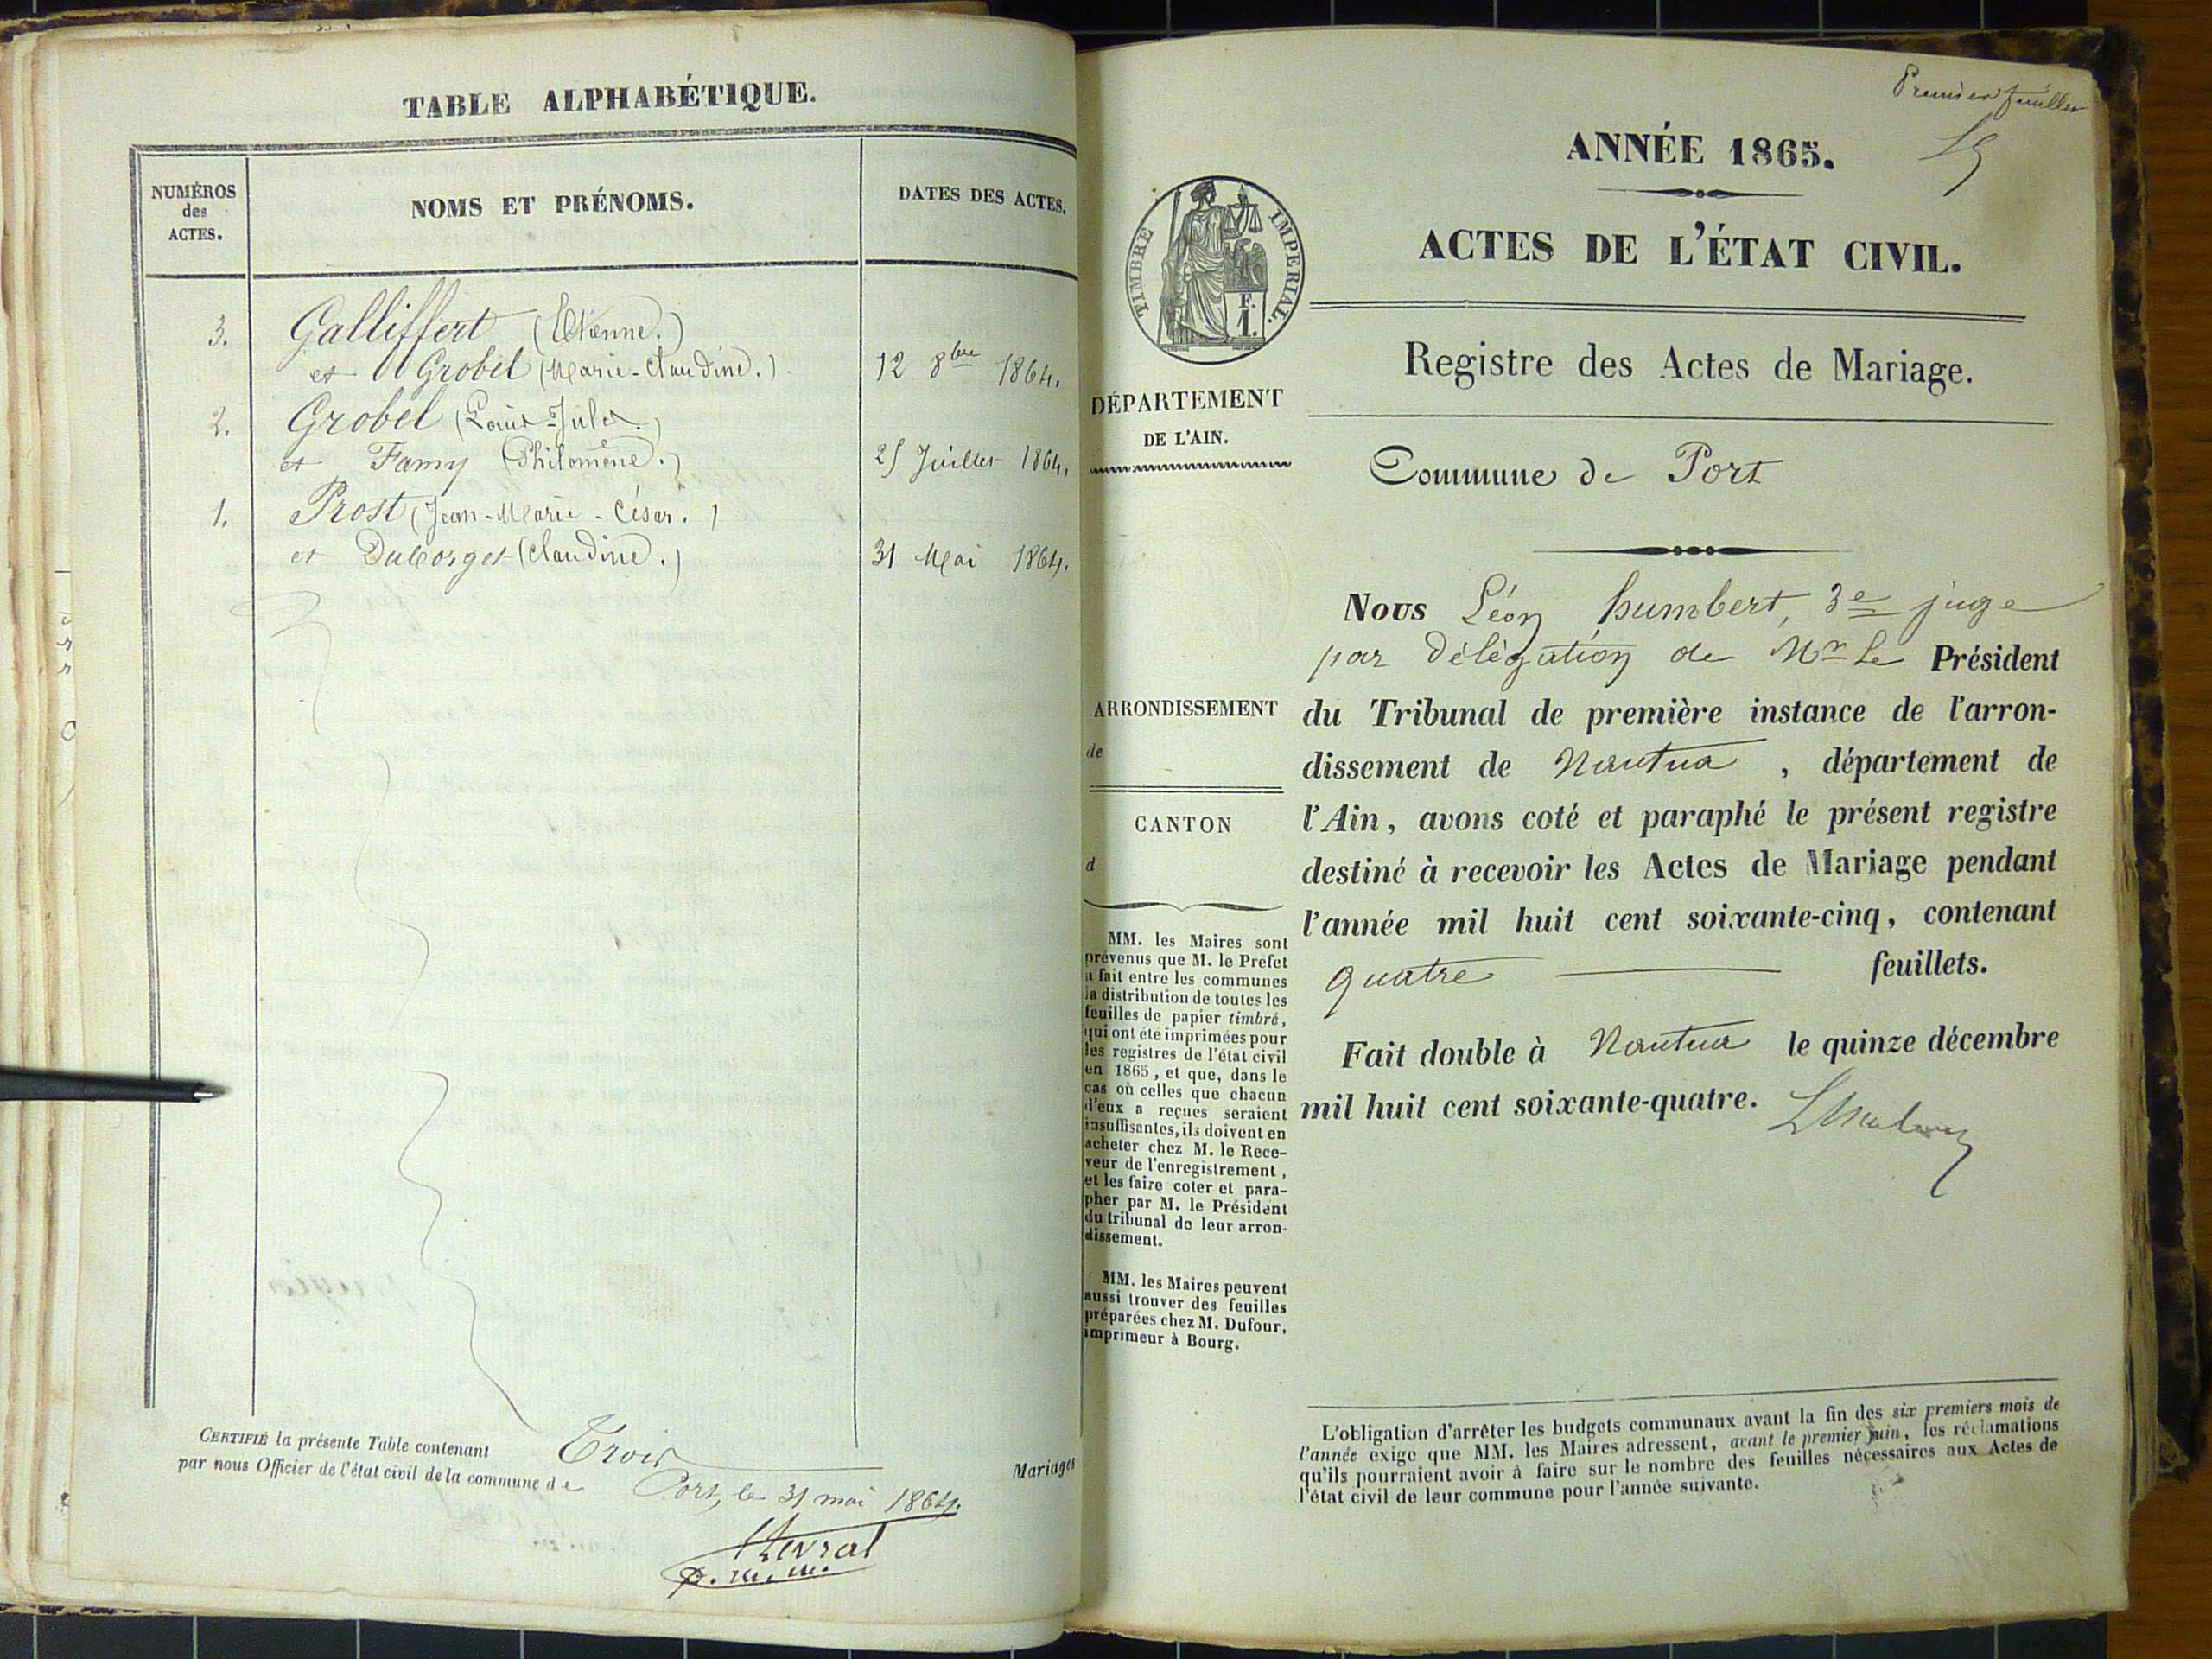 TABLE ALPHABÉTIQUE.
NUMÉROS
des
ACTES.
NOMS ET PRÉNOMS.
DATES DES ACTES.
3. Galliffert (Etienne.)
et Grobel (Marie-Claudine.) 12 8bre 1864.
2. Grobel (Louis-Jules.)
et Famy (Philomène.) 25 Juillet 1864.
1. Prost (Jean-Marie-César.)
et Ducorget (Claudine.) 31 Mai 1864.
CERTIFIÉ la présente Table contenant Trois Mariages
par nous Officier de l'état civil de la commune de Port, le 31 mai 1864.
Premier feuillet
ANNÉE 1865.
ACTES DE L'ÉTAT CIVIL.
TIMBRE IMPERIAL.
F.
1.
Registre des Actes de Mariage.
DÉPARTEMENT
DE L'AIN.
Commune de Port
Nous Léon humbert, 3e juge
par délégation de Mr Le Président
du Tribunal de première instance de l'arron-
dissement de Nantua , département de
l'Ain, avons coté et paraphé le présent registre
destiné à recevoir les Actes de Mariage pendant
l'année mil huit cent soixante-cinq, contenant
quatre feuillets.
Fait double à Nantua le quinze décembre
mil huit cent soixante-quatre.
ARRONDISSEMENT
de
CANTON
d
MM. les Maires sont
prévenus que M. le Préfet
a fait entre les communes
la distribution de toutes les
feuilles de papier timbré,
qui ont été imprimées pour
les registres de l'état civil
en 1865, et que, dans le
cas où celles que chacun
d'eux a reçues seraient
insuffisantes, ils doivent en
acheter chez M. le Rece-
veur de l'enregistrement,
et les faire coter et para-
pher par M. le Président
du tribunal de leur arron-
dissement.
MM. les Maires peuvent
aussi trouver des feuilles
préparées chez M. Dufour,
imprimeur à Bourg.
L'obligation d'arrêter les budgets communaux avant la fin des six premiers mois de
l'année exige que MM. les Maires adressent, avant le premier juin, les réclamations
qu'ils pourraient avoir à faire sur le nombre des feuilles nécessaires aux Actes de
l'état civil de leur commune pour l'année suivante.